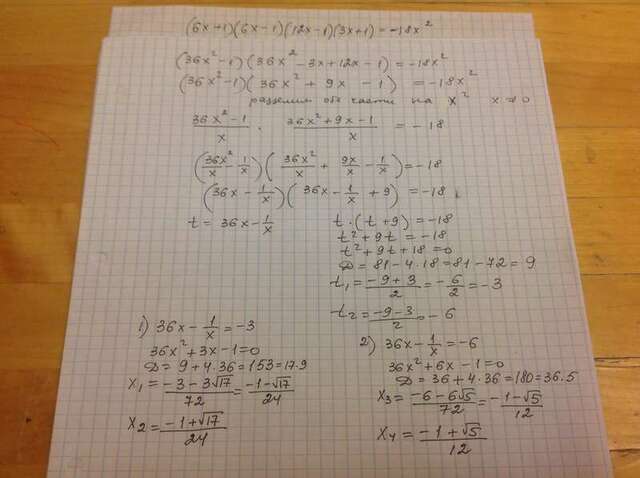 (6x+1)(6x-1)(12x-1)(3x+1)=-18x²
(36x²-1)(36x²-3x+12x-1)=-18x²
(36x²-1)(36x²+9x-1)=-18x²
разделим обе части на x² x≠0
(36x²-1)/x · (36x²+9x-1)/x = -18
(36x²/x - 1/x)(36x²/x + 9x/x - 1/x)=-18
(36x - 1/x)(36x - 1/x + 9)=-18
t = 36x - 1/x
t·(t+9)=-18
t²+9t=-18
t²+9t+18=0
D=81-4·18=81-72=9
t₁=(-9+3)/2=-6/2=-3
t₂=(-9-3)/2=-6
1) 36x - 1/x = -3
36x²+3x-1=0
D=9+4·36=153=17·9
x₁=(-3-3√17)/72=(-1-√17)/24
x₂=(-1+√17)/24
2) 36x - 1/x = -6
36x²+6x-1=0
D=36+4·36=180=36·5
x₃=(-6-6√5)/72=(-1-√5)/12
x₄=(-1+√5)/12